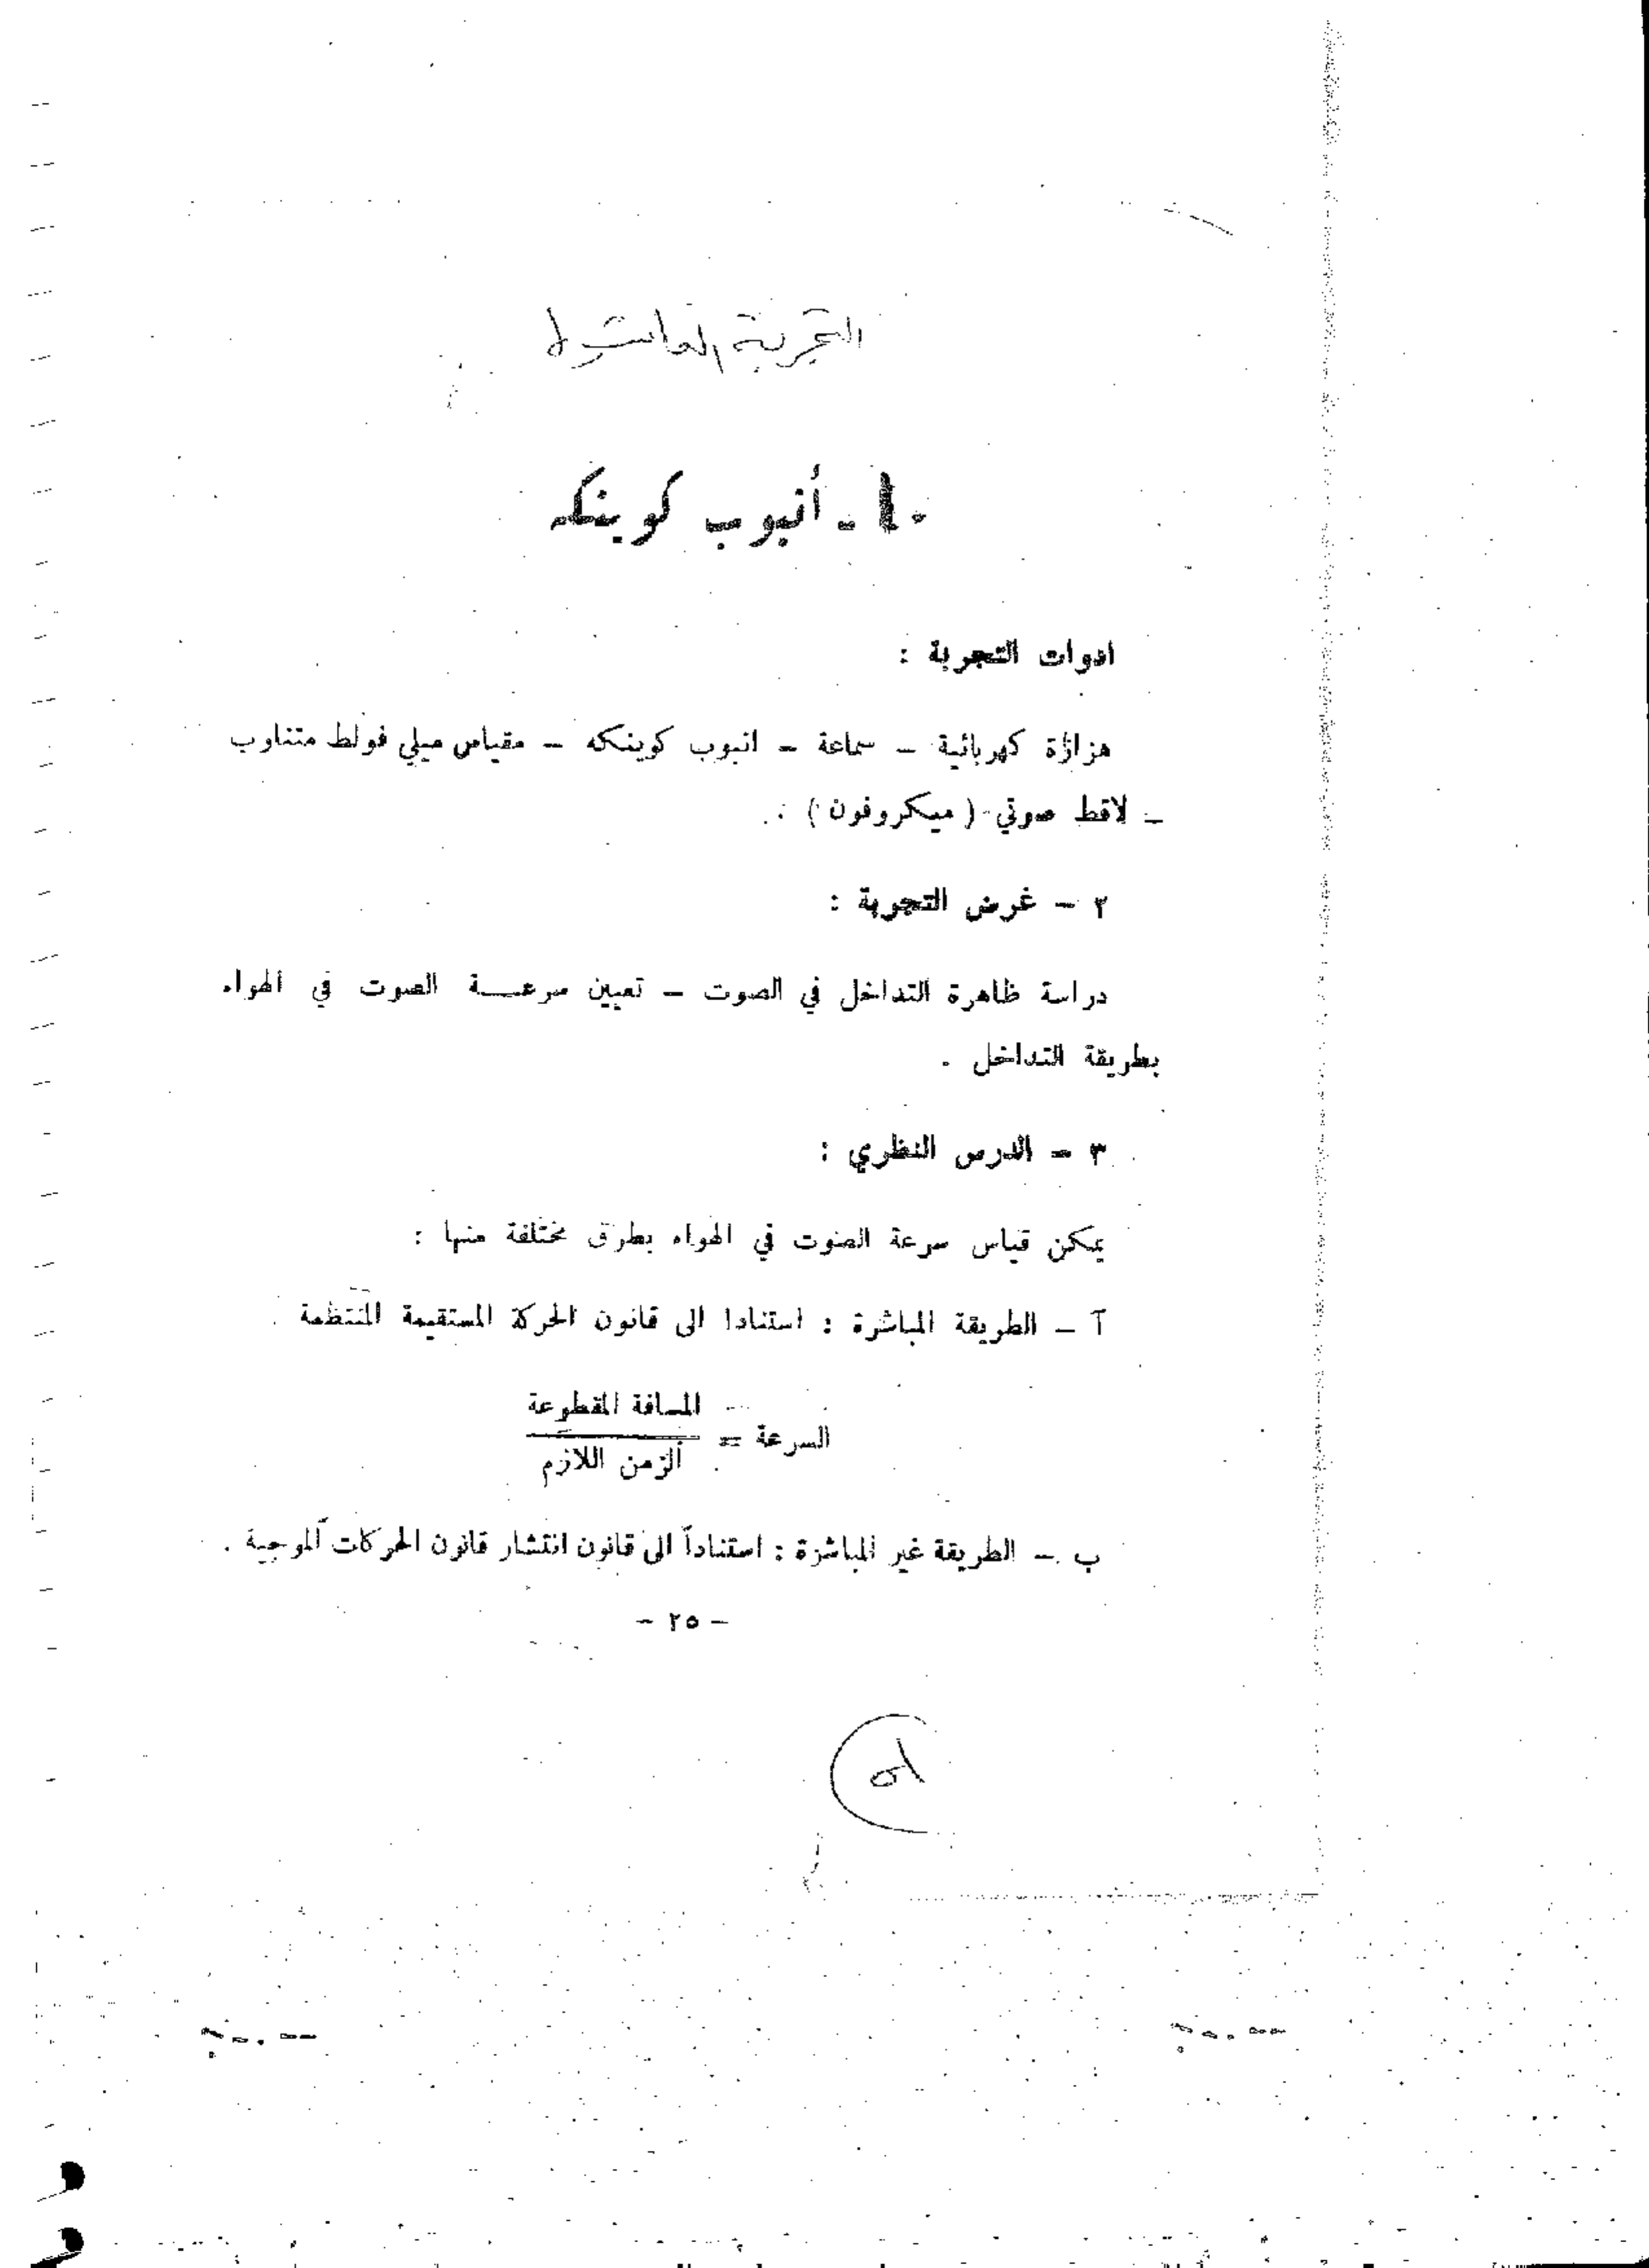 التجربة العاشرة
١٠ - أنبوب كوينكه
ادوات التجربة :
هزازة كهربائية – سماعة – انبوب كوينكه – مقياس ميلي فولط متناوب
– لاقط صوتي ( ميكروفون ) .
٢ – غرض التجربة :
دراسة ظاهرة التداخل في الصوت – تعيين سرعة الصوت في الهواء
بطريقة التداخل .
٣ – الدرس النظري :
يمكن قياس سرعة الصوت في الهواء بطرق مختلفة منها :
آ – الطريقة المباشرة : استنادا الى قانون الحركة المستقيمة المنتظمة
المسافة المقطوعة
السرعة =
الزمن اللازم
ب – الطريقة غير المباشرة : استناداً الى قانون انتشار قانون الحركات الموجية .
– ٢٥ –